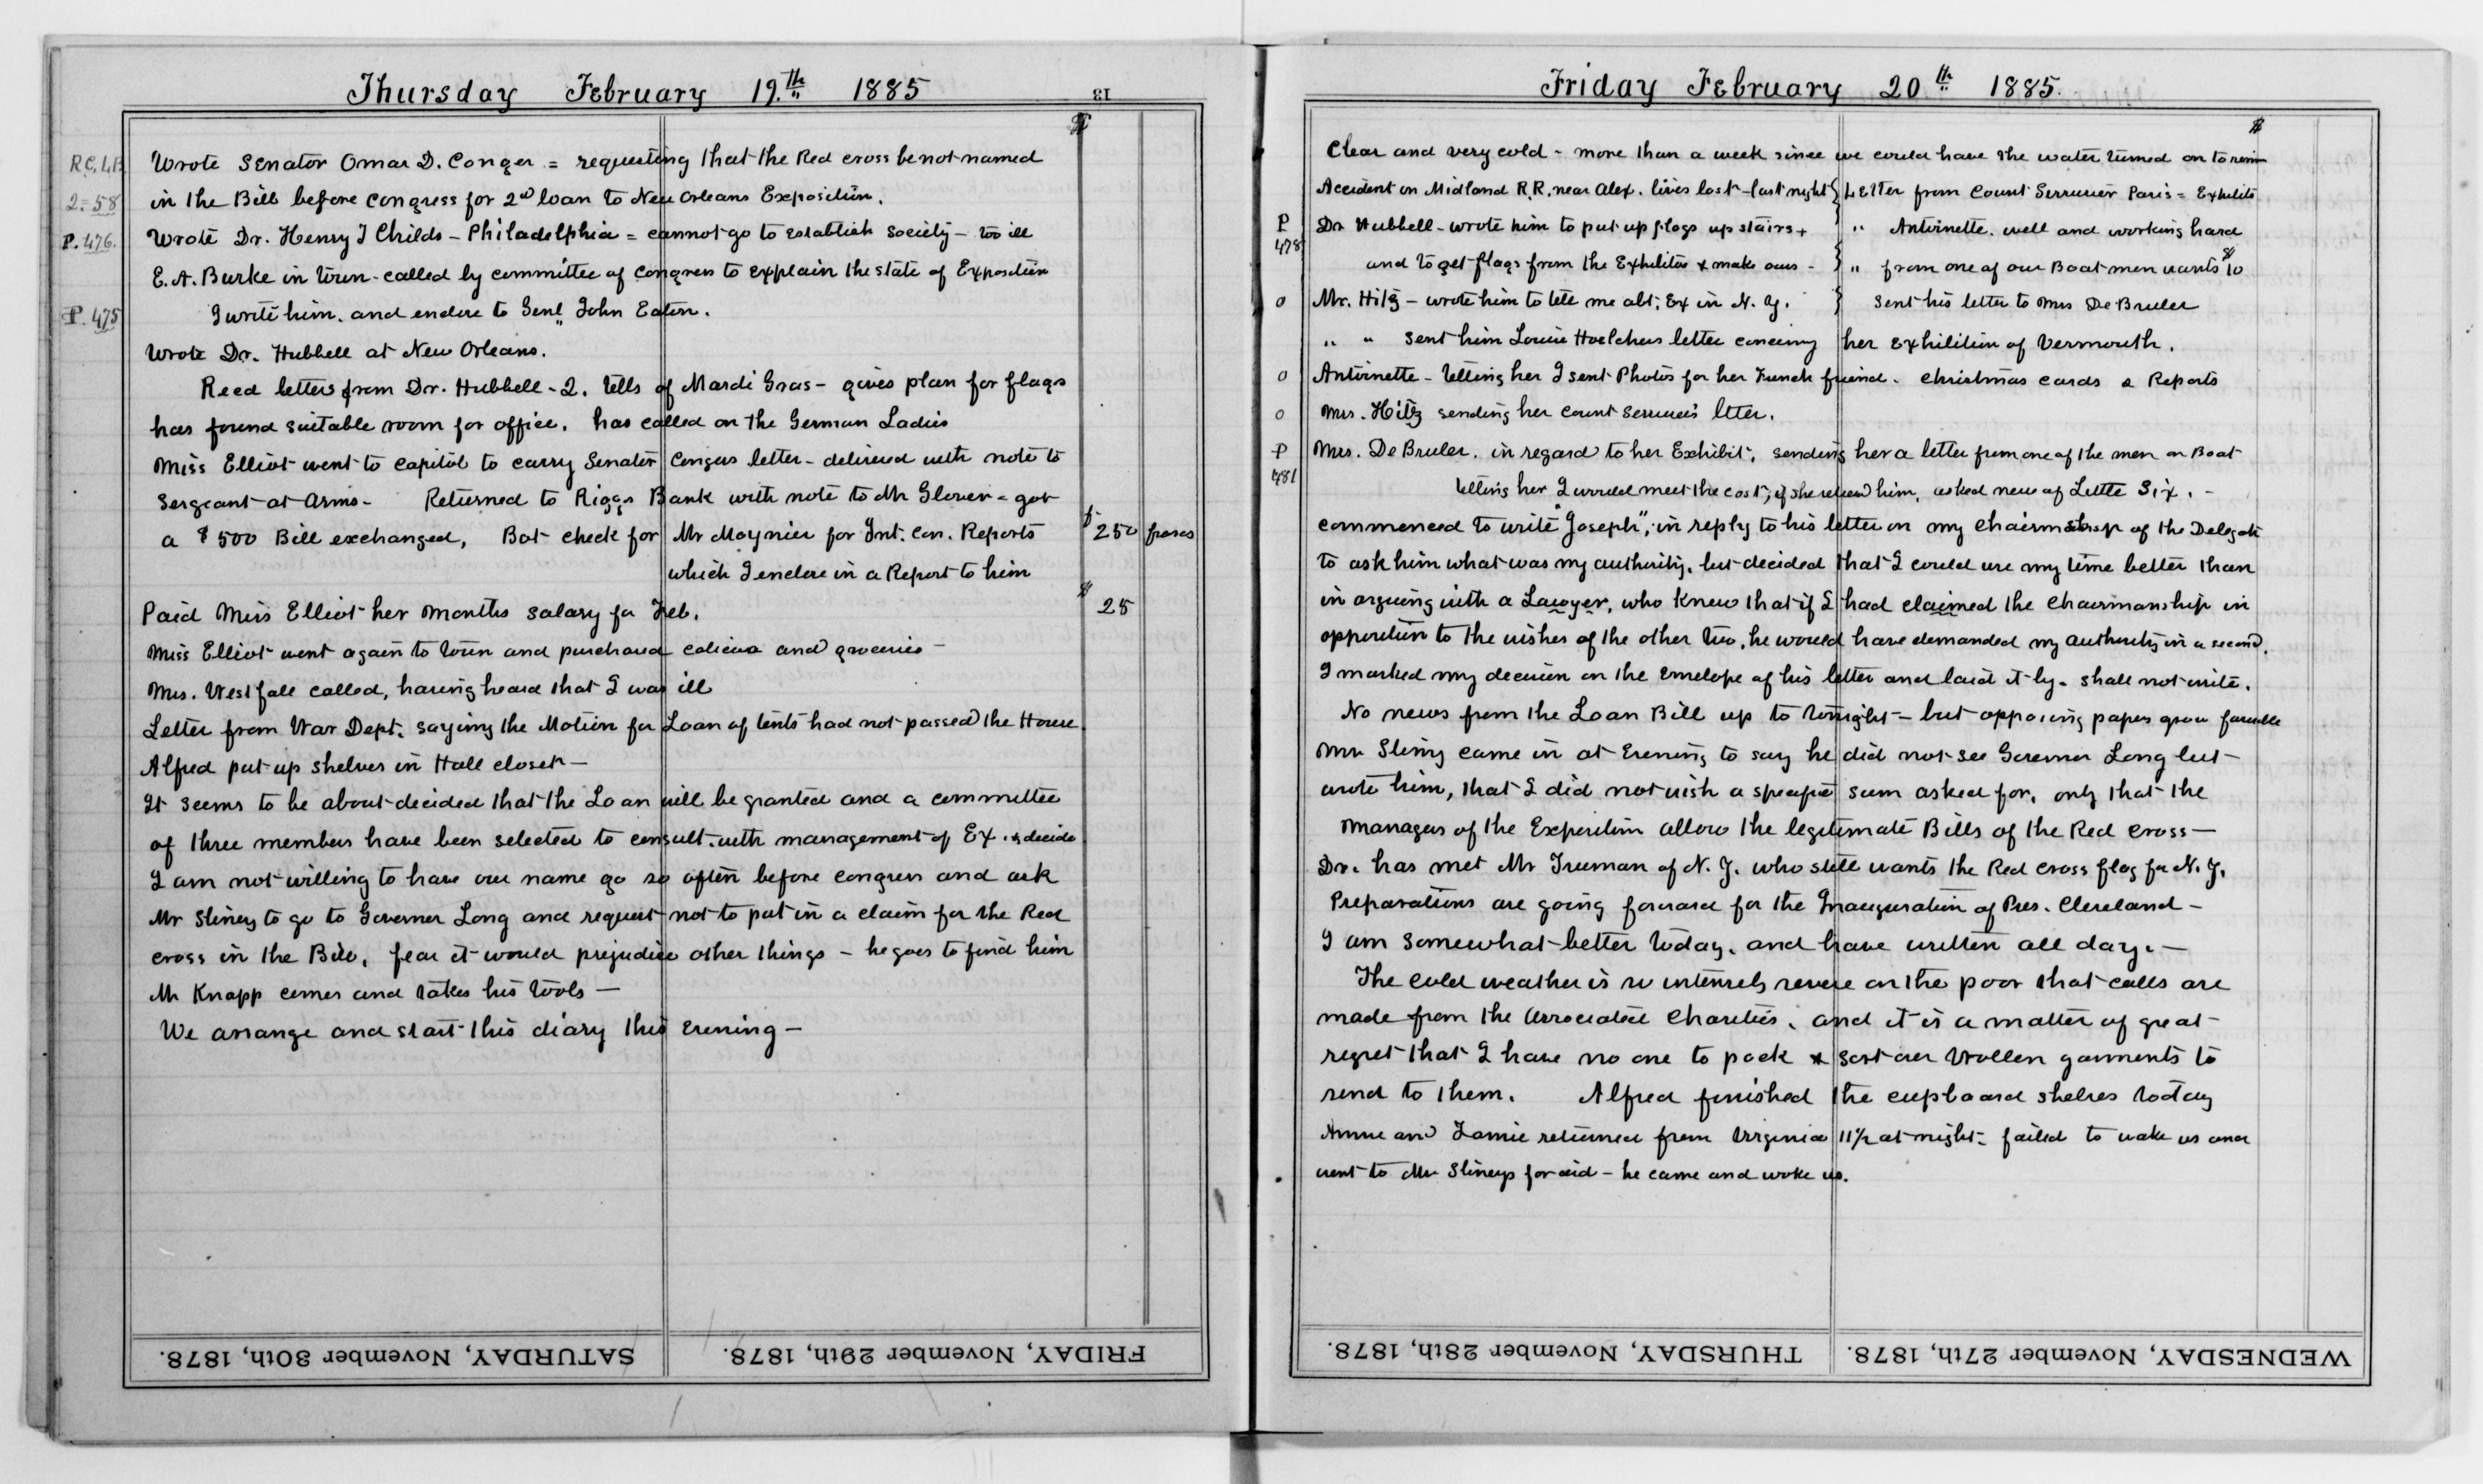 Thursday February 19.th 1885
13
$
R.C.L.B. Wrote Senator Omar D. Conger = requesting that the Red cross be not named
2=58 in the Bill before congress for 2nd loan to New Orleans Exposition.
P. 476. Wrote Dr. Henry T Childs - Philadelphia = cannot go to establish Society - too ill
E. A. Burke in town - called by committee of congress to explain the state of Exposition
P. 475 I write him. and enclose to Genl John Eaton.
Wrote Dr. Hubbell at New Orleans.
Recd letters from Dr. Hubbell - 2. tells of Mardi Gras - gives plan for flags
has found suitable room for office. has called on the German Ladies
Miss Elliot went to capitol to carry Senator Congers letter - delivered with note to
Sergeant at Arms - Returned to Riggs Bank with note to Mr Glover = got
a $500 Bill exchanged, Bot check for Mr Moynier for Int. Con. Reports $ 250 francs
which I enclose in a Report to him
Paid Miss Elliot her months salary for Feb. $ 25
Miss Elliot went again to town and purchased calicoes and groceries -
Mrs. Westfall called, having heard that I was ill
Letter from War Dept. saying the Motion for Loan of tents had not passed the House.
Alfred put up shelves in Hall closet -
It seems to be about decided that the Loan will be granted and a committee
of three members have been selected to consult with management of Ex. & decide
I am not willing to have our name go so often before congress and ask
Mr Stiney to go to Governer Long and request not to put in a claim for the Red
cross in the Bill, fear it would prejudice other things - he goes to find him
Mr Knapp comes and takes his tools -
We arrange and start this diary this evening -
SATURDAY, November 30th, 1878.
FRIDAY, November 29th, 1878.
Friday February 20th 1885.
$
Clear and very cold - more than a week since we could have the water turned on to
Accident on Midland R.R. near Alex. lives lost - last night } Letter from Count Serrurier Paris = Exhibits
P 478 Dr Hubbell - wrote him to put up flags up stairs + } " Antoinette. well and working hard
and to get flags from the Exhibitor & make ours - } " from one of our Boat men wants $10
o Mr. Hitz - wrote him to tell me abt. Ex in N. Y. } Sent his letter to Mrs DeBruler
" " Sent him Louise letter concerning her Exhibition of Vermouth.
o Antoinette - telling her I sent Photos for her French friend. christmas cards & Reports
o Mrs. Hitz sending her Count Serruriers letter.
P 481 Mrs. DeBruler. in regard to her Exhibit, sending her a letter from one of the men on Boat
telling her I would meet the cost, if she relieved him, asked news of Little Six. -
commenced to write "Joseph", in reply to his letter on my chairmanship of the Delegate
to ask him what was my authority. but decided that I could use my time better than
in arguing with a Lawyer, who knew that if I had claimed the chairmanship in
opposition to the wishes of the other two, he would have demanded my authority in a second.
I marked my decision on the Envelope of his letter and laid it by. shall not write.
No news from the Loan Bill up to tonight - but opposing papers grow favorable
Mr Stiney came in at Evening to say he did not see Governor Long but
wrote him, that I did not wish a specific sum asked for, only that the
managers of the Exposition allow the legitimate Bills of the Red cross -
Dr. has met Mr Truman of N. Y. who still wants the Red cross flag for N. Y.
Preparations are going forward for the Inauguration of Pres. Cleveland -
I am somewhat better today. and have written all day. -
The cold weather is so intensely severe on the poor that calls are
made from the Associated Charities, and it is a matter of great
regret that I have no one to pack & sort our Wollen garments to
send to them. Alfred finished the cupboard shelves today
Annie and returned from Virginia 11½ at night - failed to wake us and
went to Mr Stineys for aid - he came and woke us.
THURSDAY, November 28th, 1878.
WEDNESDAY, November 27th, 1878.